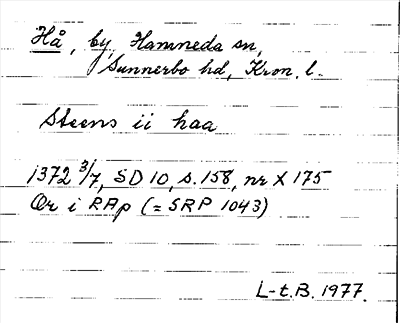 Hå, by, Hamneda sn,
Sunnerbo hd, Kron. l.
Steens ii haa
1372 3/7, SD 10, s. 158, nr X 175
Or i RAp (= SRP 1043)
L-t.B. 1977.